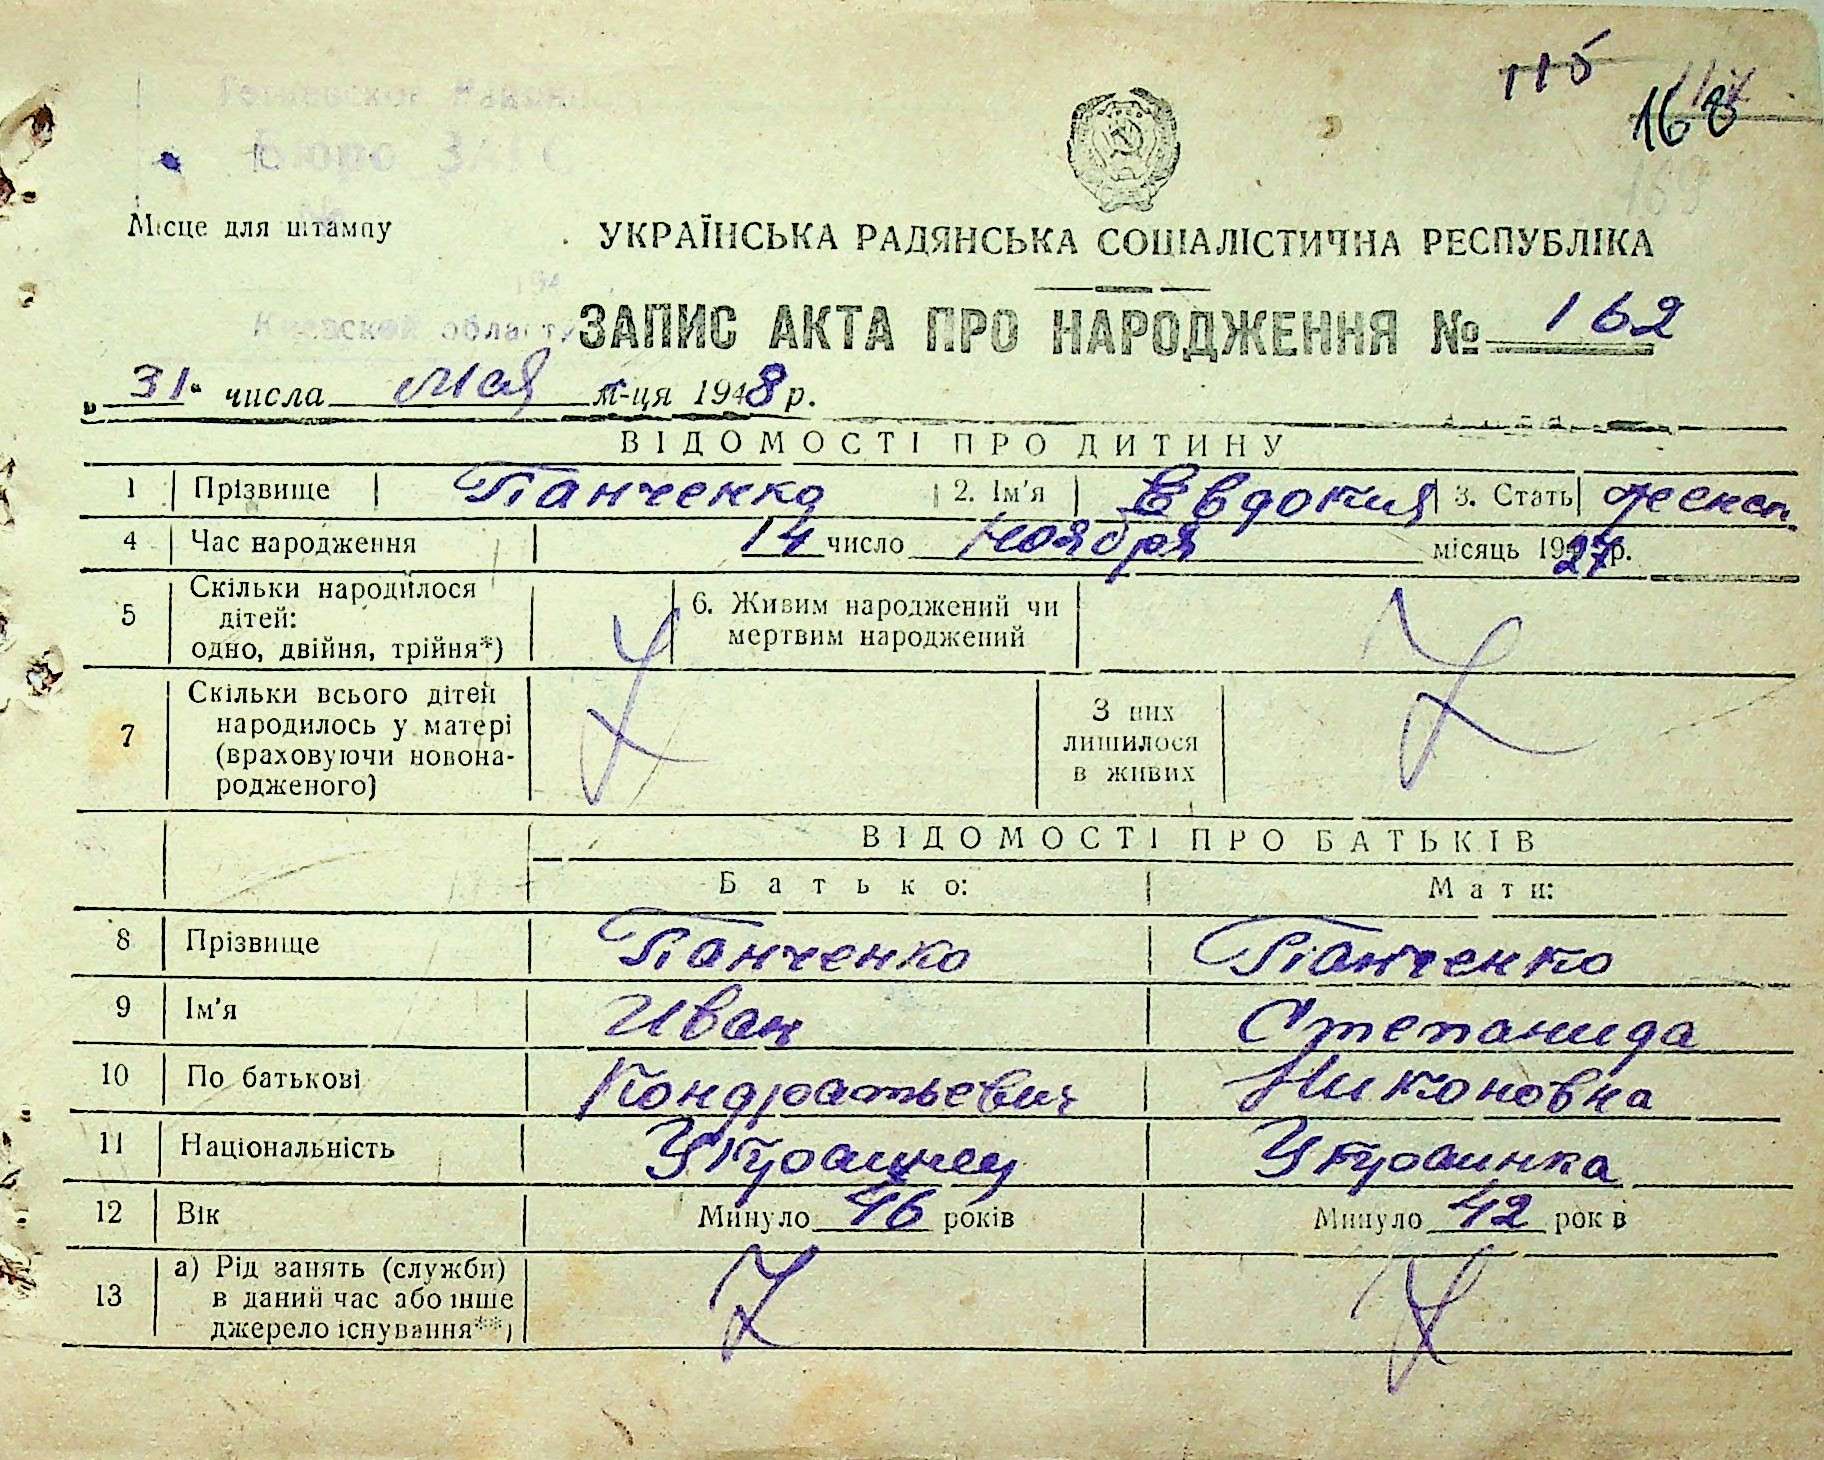 115
117
168
169
Бюро ЗАГС
Місце для штампу
УКРАЇНСЬКА РАДЯНСЬКА СОЦІАЛІСТИЧНА РЕСПУБЛІКА
194
Киевской области
ЗАПИС АКТА ПРО НАРОДЖЕННЯ № 162
„31“ числа Мая м-ця 1948 р.
ВІДОМОСТІ ПРО ДИТИНУ
1 Прізвище Панченко 2. Ім'я Евдокия 3. Стать женск.
4 Час народження 14 число Ноября місяць 1927 р.
5 Скільки народилося дітей: одно, двійня, трійня*) 6. Живим народжений чи мертвим народжений
7 Скільки всього дітей народилось у матері (враховуючи новонародженого) З них лишилося в живих
ВІДОМОСТІ ПРО БАТЬКІВ
Батько: Мати:
8 Прізвище Панченко Панченко
9 Ім'я Иван Степанида
10 По батькові Кондратьевич Никоновна
11 Національність Украинец Украинка
12 Вік Минуло 46 років Минуло 42 рок в
13 а) Рід занять (служби) в даний час або інше джерело існування**)